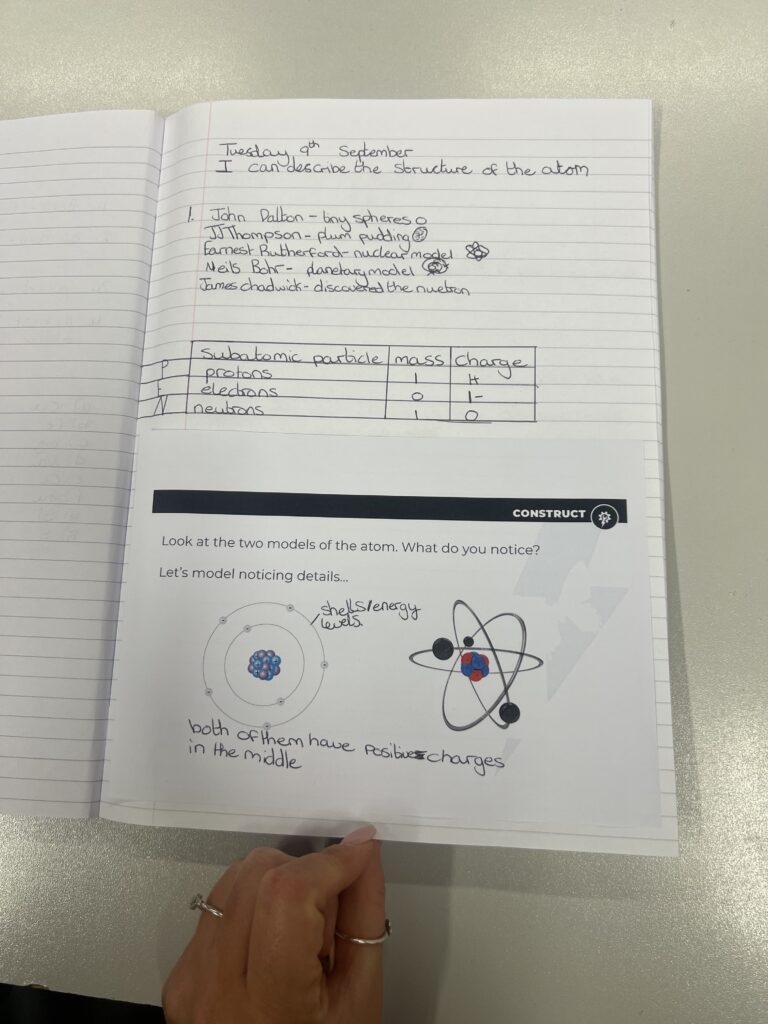 Tuesday 9th September
I can describe the structure of the atom
1. John Dalton - tiny spheres
JJ Thompson - plum pudding
Earnest Rutherford - nuclear model
Neils Bohr - planetary model
James chadwick - discovered the nuetron
subatomic particle mass charge
P protons 1 1+
E electrons 0 1-
N neutrons 1 0
CONSTRUCT
Look at the two models of the atom. What do you notice?
Let's model noticing details...
shells/energy
levels.
both of them have positive charges
in the middle